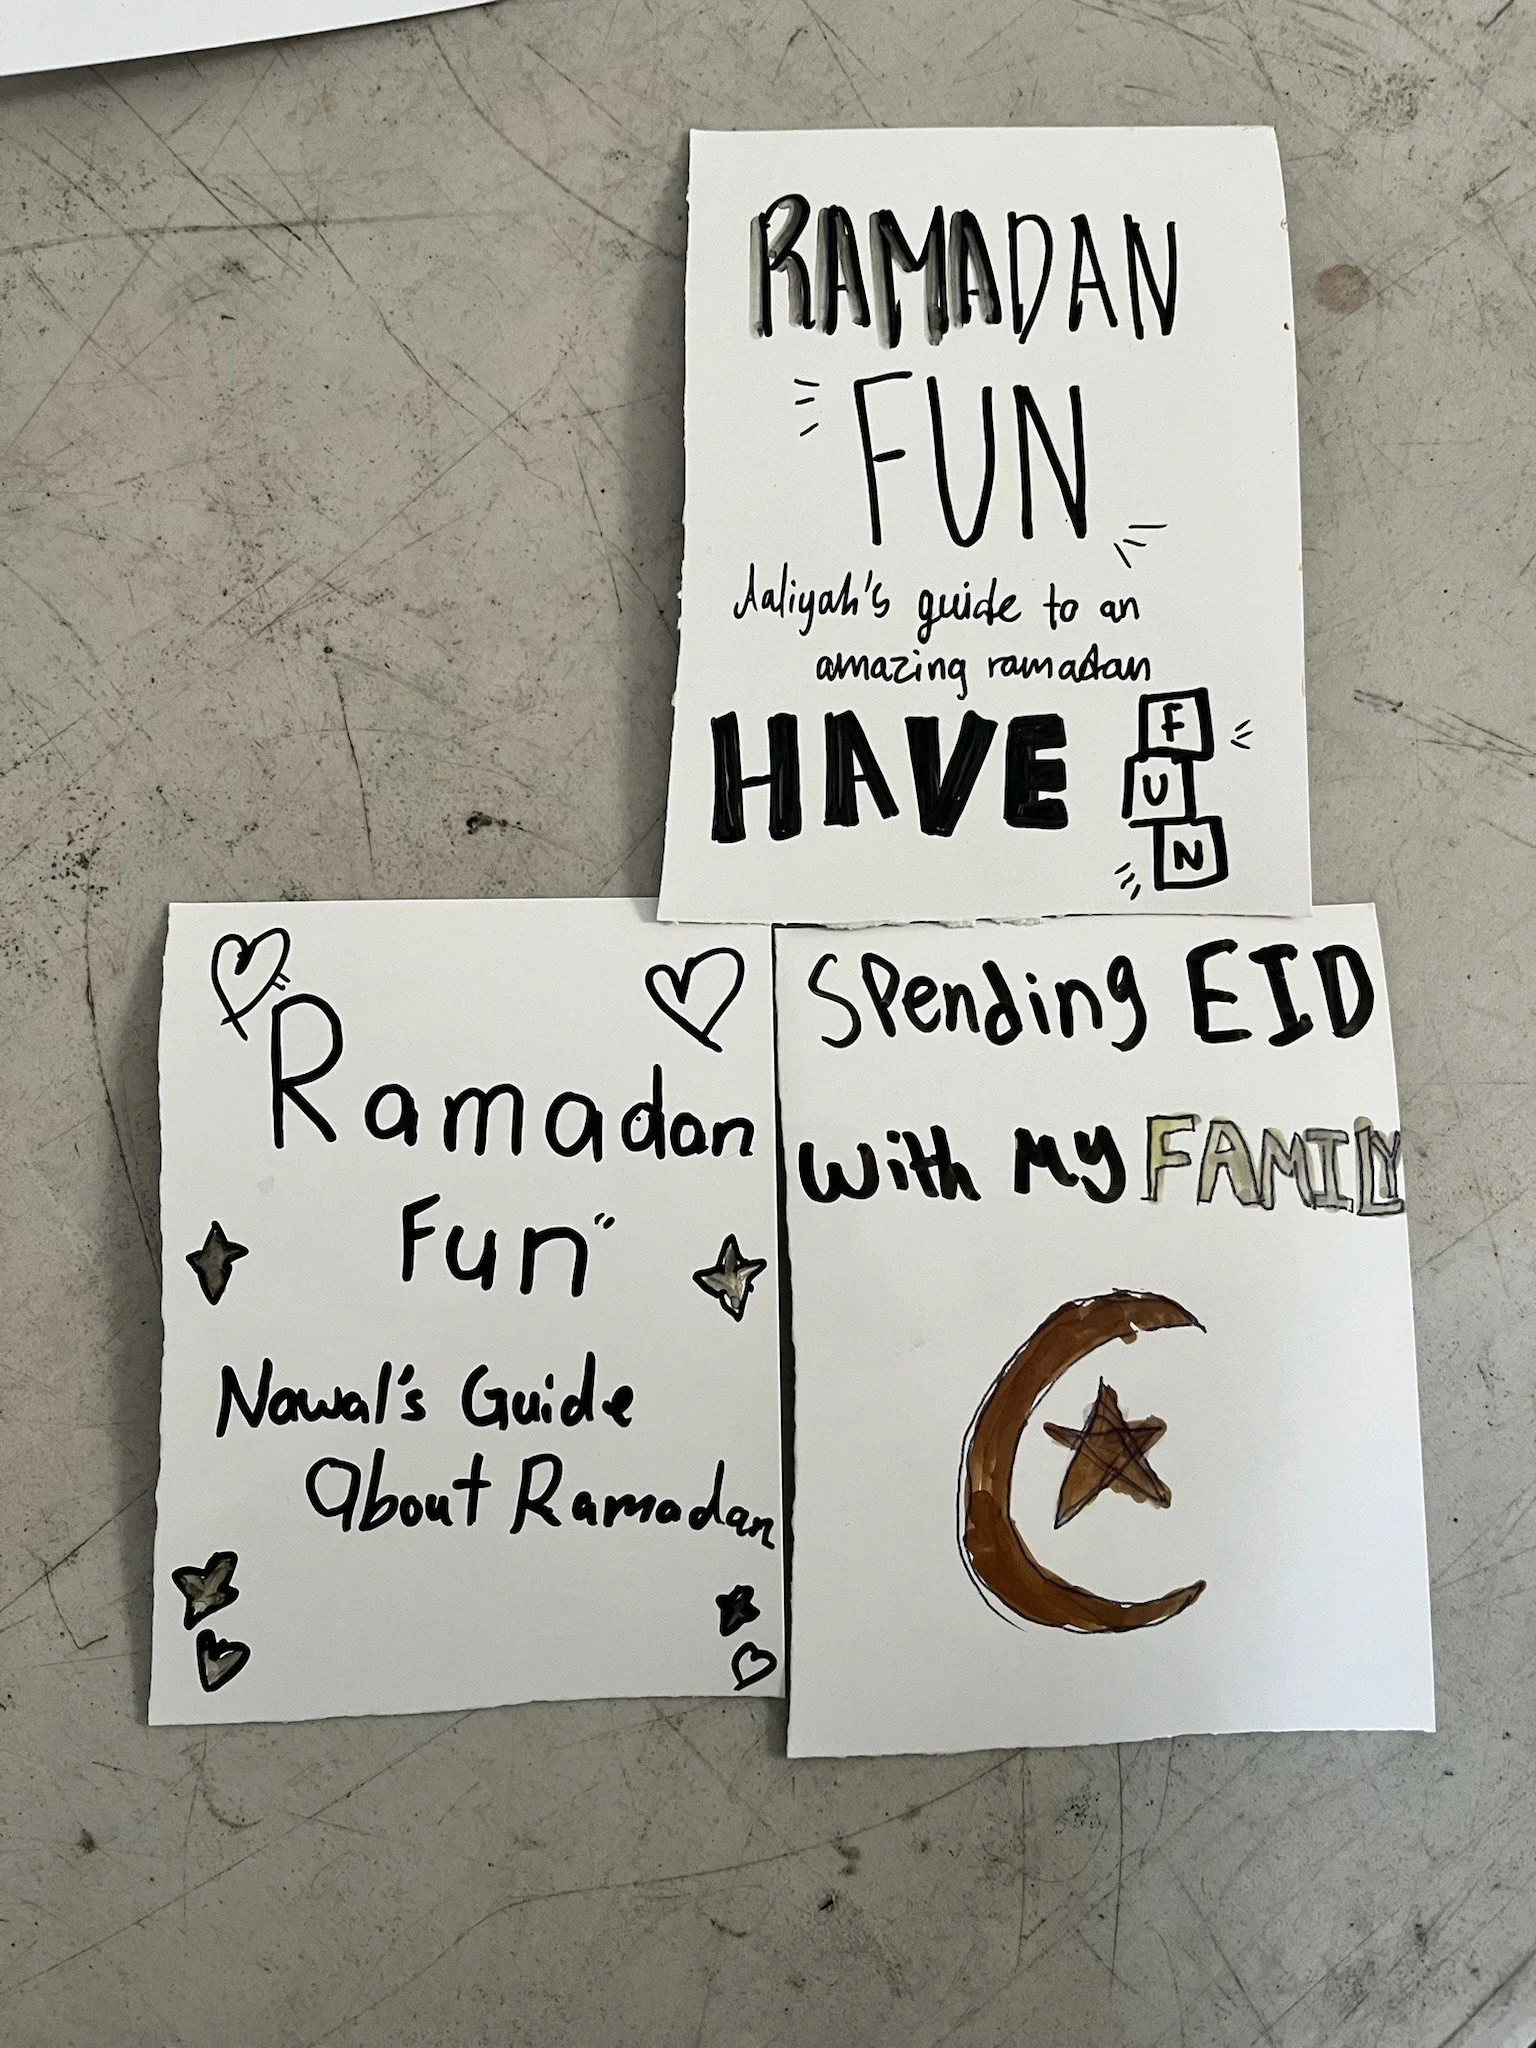 RAMADAN
FUN
Aaliyah's guide to an
amazing ramadan
HAVE FUN
Ramadan
Fun
Nawal's Guide
About Ramadan
Spending EID
with My FAMILY